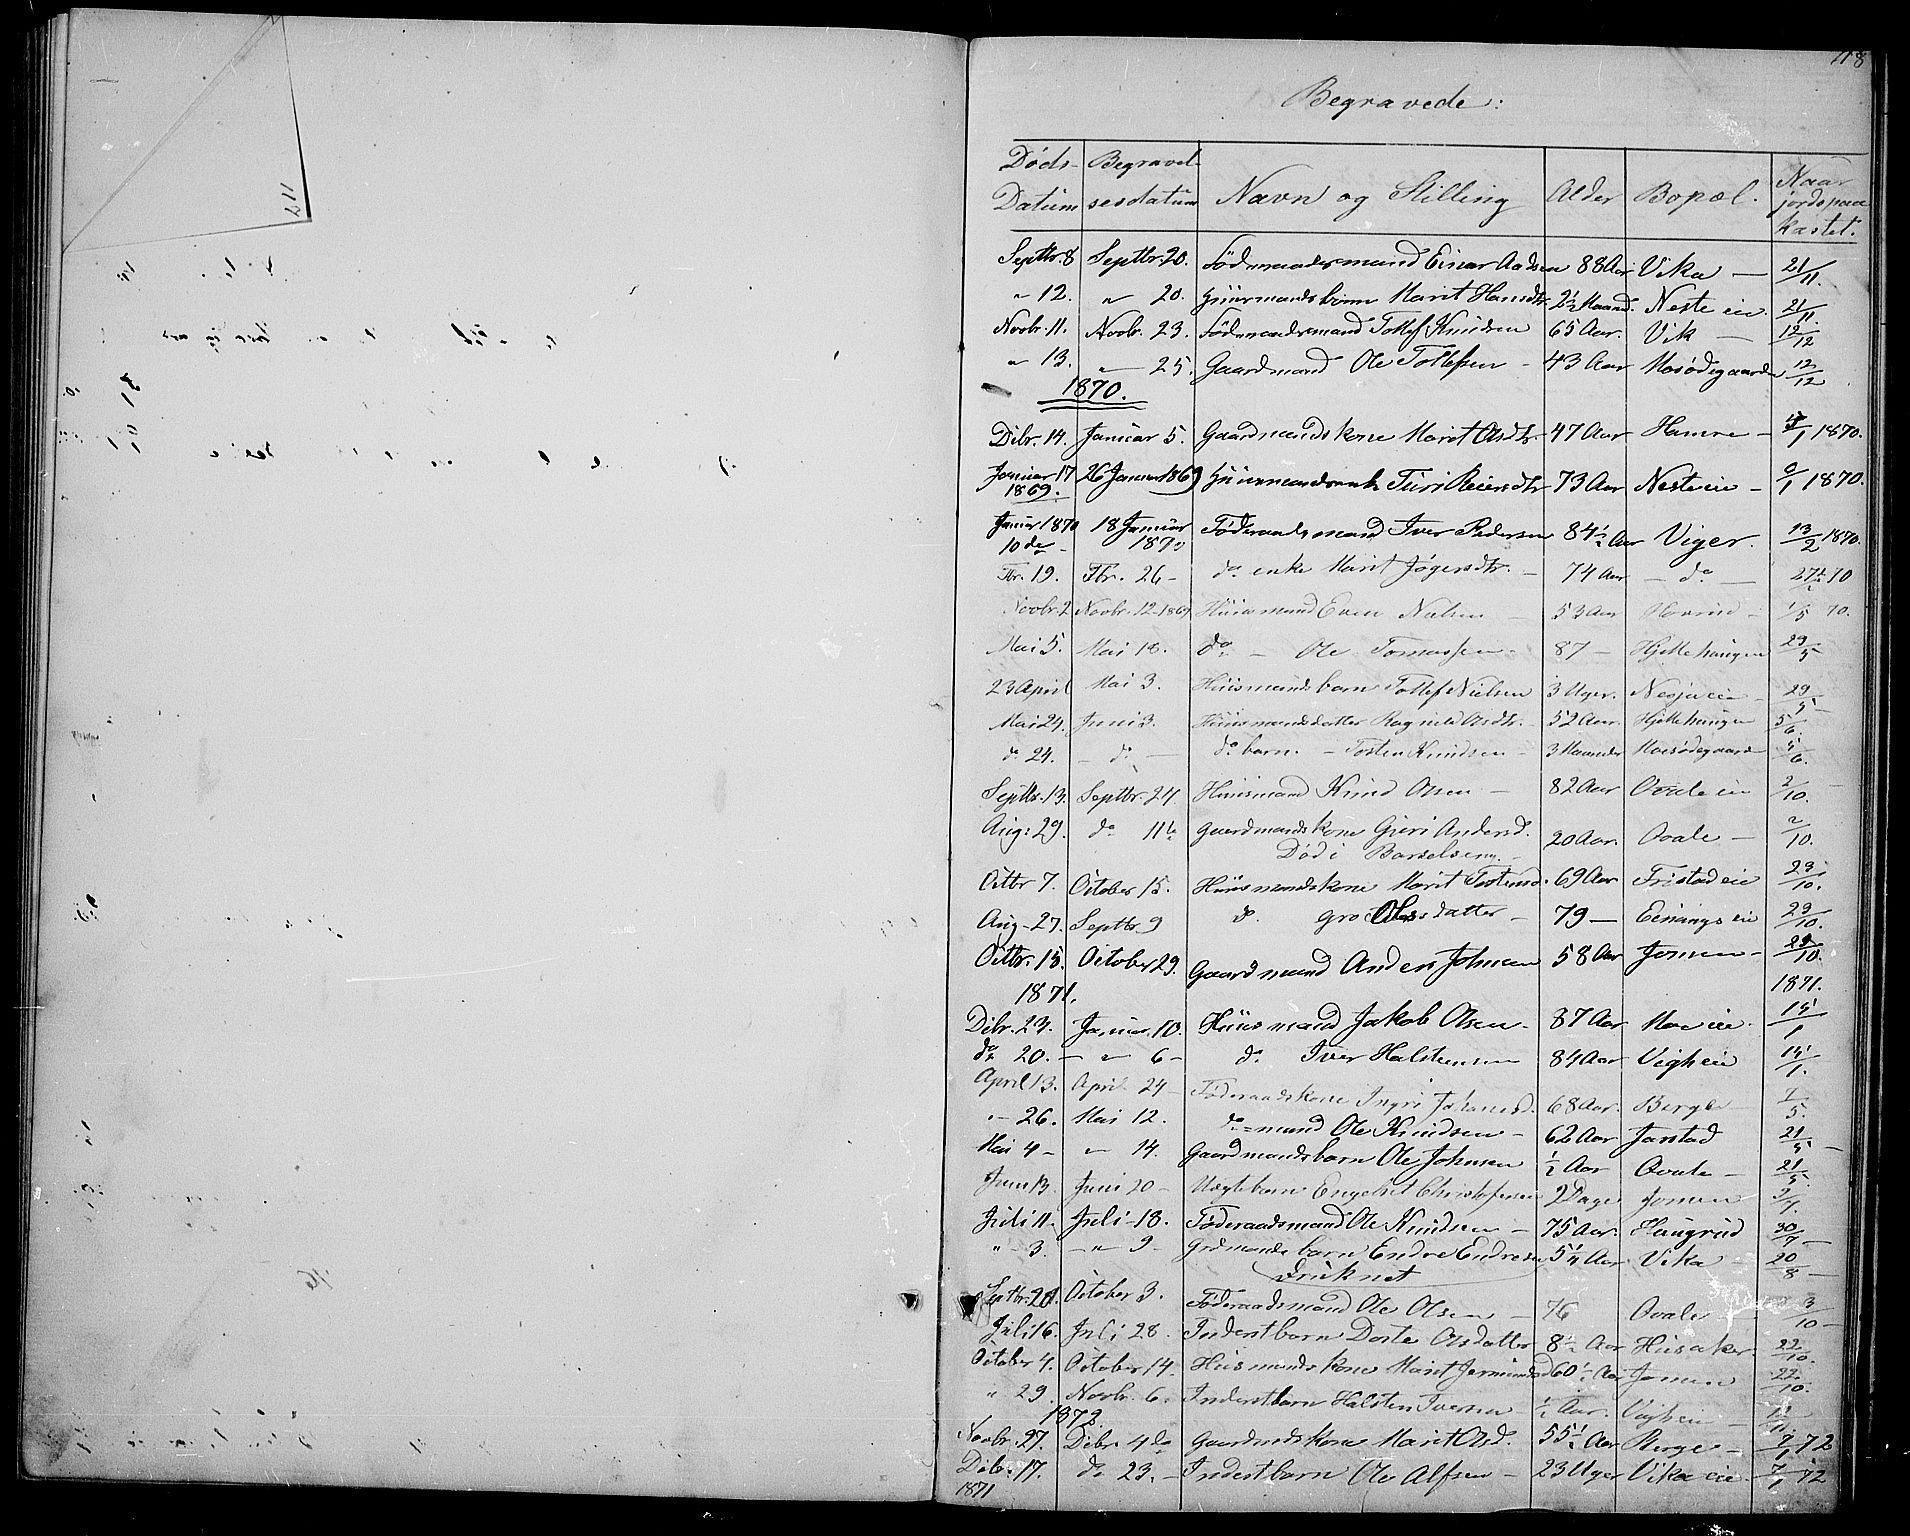 112
118
Begravede:
Døds- Datum | Begravel- sesdatum | Navn og Stilling | Alder | Bopæl. | Naar jordspaa- kastet.
Septbr. 8 | Septbr. 20. | Föderaadsmand Einar Aadsen | 88 Aar | Vika — | 21/11.
" 12. | " 20. | Huusmandsbarn Marit Hansdtr. | 2½ Maand. | Neste eie. | 21/11.
Novbr. 11. | Novbr. 23. | Föderaadsmand Tollef Knudsen | 65 Aar. | Vik — | 12/12
" 13. | " 25. | Gaardmand Ole Tollefsen - | 43 Aar | Mosødegaarden | 12/12
1870.
Debr. 14. | Januar 5. | Gaardmandskone Marit Olsdtr. | 47 Aar | Hamre - | /1 1870.
Januar 17 1869. | 26 Januar 1869 | Huusmandsenke Turi Reiersdtr | 73 Aar | Nesteeie - | 9/1 1870.
Januar 1870 10de - | 18 Januar 1870 | Föderaadsmand Iver Pedersen | 84½ Aar | Viger. | 13/2 1870.
Fbr. 19. | Fbr. 26 - | do enke Marit Jøgersdtr. - | 74 Aar | - do - | 27/ 70
Novbr. 2 | Novbr. 12 - 1869 | Huusmand Even Nielsen - | 53 Aar | | 1/5 70.
Mai 5. | Mai 18. | do - Ole Tomassen - | 87 - | Hjeltehaugen | 29/5
23 April | Mai 3. | Huusmandsbarn Tollef Nielsen | 3 Uger. | Nesja eie - | 29/5
Mai 24. | Juni 3. | Huusmandsdatter Ragnild Olsdtr. - | 52 Aar. | Hjeltehaugen | 5/6.
do 24. | - do - | do barn. - Tosten Knudsen - | 3 Maaneder | Mosødegaard | 5/6.
Septbr. 13. | Septbr. 24 | Huusmand Knud Olsen - | 82 Aar | Ovale eie | 2/10.
Aug: 29. | do 11te | Gaardmandskone Guri Andersd. | 20 Aar. | Ovale - | 2/10.
Død i Barselseng. -
Octbr 7. | October 15. | Huusmandskone Marit Tostensd. | 69 Aar | Tristad eie | 23/10.
Aug - 27. | Septbr. 9 | do. Gro Olsdatter - | 79 - | Einangs eie | 29/10.
Octbr. 18. | October 29. | Gaardmand Anders Johnsen | 58 Aar | Jomen - | 29/10.
1871. | 1871.
Debr. 23. | Januar. 10. | Huusmand Jakob Olsen - | 87 Aar | Moe eie. | 15/1
do 20. - | " 6 - | do. Iver Halstensen | 84 Aar | Vigh eie | 15/1.
April 13. | April 24 - | Föderaadskone Ingri Johansd. | 68 Aar. | Berge - | /5.
" - 26. | Mai 12. | do = mand Ole Knudsen - | 62 Aar | Jarstad | 21/5 -
Mai 4 - | " 14. | Gaardmandsbarn Ole Johnsen | ½ Aar | Ovale - | 21/5.
Juni 13. | Juni 20 - | Uægtebarn Engebret Christofersen | 2 Dage | Jomen | 2/7.
Juli 11. | Juli - 18. | Föderaadsmand Ole Knudsen - | 75 Aar. | Haugrud | 30/7 -
" - 3. | - " 9 - | Grdmands barn Endre Endresen | 5¼ Aar | Vika - | 20/8 -
Druknet
Septbr. 20. | October 3. | Föderaadsmand Ole Olsen - | 76 | Ovale - | 3/10 -
Juli 16. | Juli 28. | Inderstbarn Dorte Olsdatter | 8½ Aar | Husaker. | 22/10.
October 4. | October 14. | Huusmandskone Marit Jermundsd | 60½ Aar | Jomen | 22/10.
" 29. | Novbr. 6. | Inderstbarn Halsten Iversen - | ½ Aar. | Vigh eie - |
1872.
Novbr. 27. | Debr. 4de | Gaardmdskone Marit Olsd. | 55½ Aar | Berge - | 7/1 72
Debr. 17. 1871 | do 23. - | Inderstbarn Ole Alfsen - | 23 Uger | Vika eie. | 7/1 72